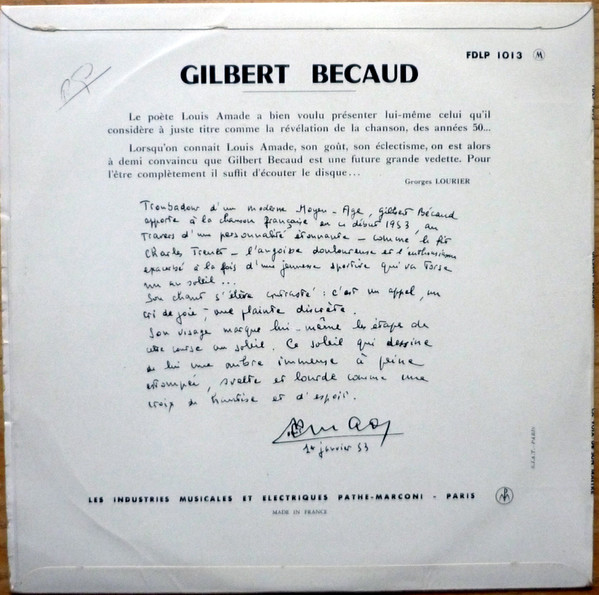 FDLP 1013 M
GILBERT BECAUD
Le poète Louis Amade a bien voulu présenter lui-même celui qu'il
considère à juste titre comme la révélation de la chanson, des années 50...
Lorsqu'on connait Louis Amade, son goût, son éclectisme, on est alors
à demi convaincu que Gilbert Becaud est une future grande vedette. Pour
l'être complètement il suffit d'écouter le disque...
Georges LOURIER
Troubadour d'un moderne Moyen-Age, Gilbert Bécaud
apporte à la chanson française en ce début 1953, au
travers d'une personnalité étonnante - comme le fit
Charles Trenet - l'angoisse douloureuse et l'enthousiasme
exacerbé à la fois d'une jeunesse sportive qui va torse
nu au soleil...
Son chant s'élève contrasté : c'est un appel, un
cri de joie ; une plainte discrète.
Son visage marque lui-même les étapes de
cette course au soleil. Ce soleil qui dessine
de lui une ombre immense à peine
estompée, svelte et lourde comme une
croix de hantise et d'espoir.
1er janvier 53
LES INDUSTRIES MUSICALES ET ELECTRIQUES PATHE-MARCONI - PARIS
MADE IN FRANCE